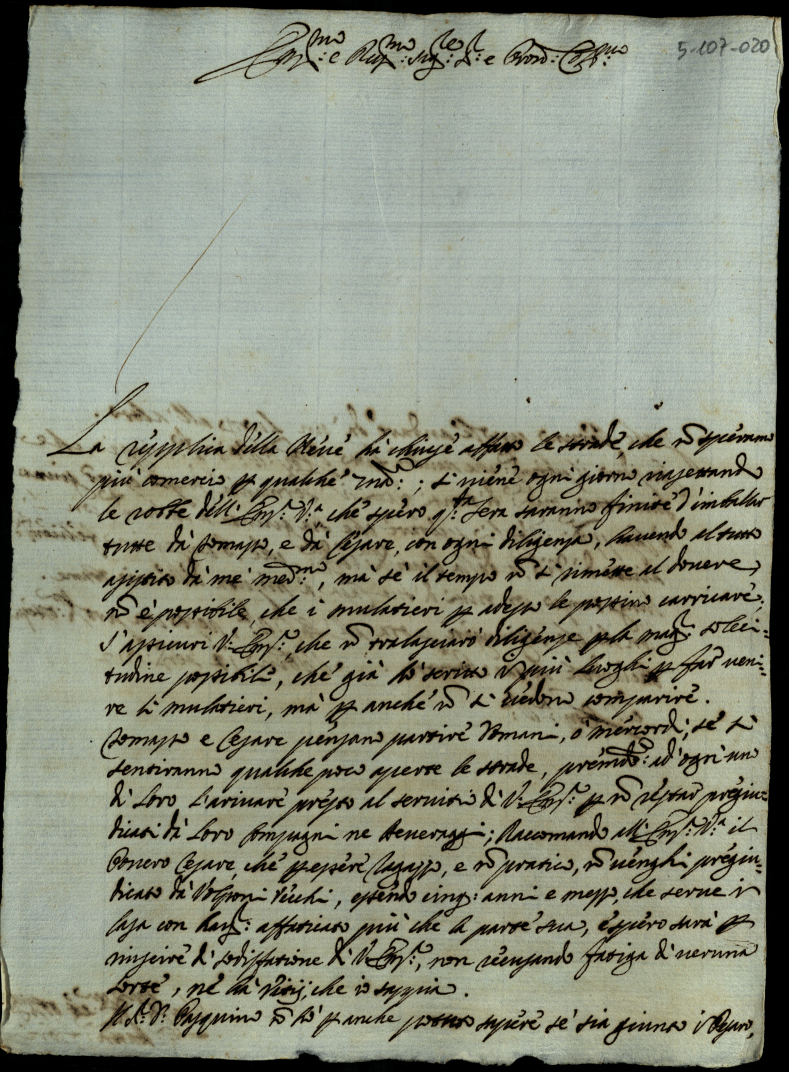 5-107-020
Em.mo e Rev.mo Sig.re S.r e Pron: Col.mo
La repplica della Neve hà chiuse affatto le strade, che nō speriamo
più comercio p qualche
le robbe dell' Em.za V.a che spero q.ta sera saranno finite d'imballar
tutte dà Tomaso, e dà Cesare, con ogni diligenza, havendo al tutto
assistito dà mè med.mo, mà sè il tempo nō si rimette al dovere,
nō è possibile, che i mulatieri p adesso le possino carricare,
S'assicuri V: Em.za, che nō tralasciarò diligenze p la mag.r soleci:
tudine possibile, che già hò scritto ī più luoghi p far veni:
re li mulatieri, mà p anche nō si vedono comparire.
Tomaso e Cesare pensano partire domani, ò mercordì, sè si
sentiranno qualche poco aperte le strade, premēdo: ad' ogni un
di Loro l'arivare presto al servitio di V: Em.za p nō restar pregiu:
dicati dà Loro Compagni ne Beveraggi; Raccomando all' Em.za V.a il
Povero Cesare, che p essere Ragazzo, e nō pratico, nō venghi pregiu:
dicato dà Volponi Vecchi, essendo cinq: anni e mezzo, che serve ī
Casa con haver affaticato più che la parte sua, e spero sarà p
riuscire di sodisfatione di V: Em.za, non recusando fatiga di veruna
sorte, nè hà Vitij, che io sappia.
Il S.r D: Pasquino nō hò p anche potuto sapere sè sia giunto ī Pesaro,